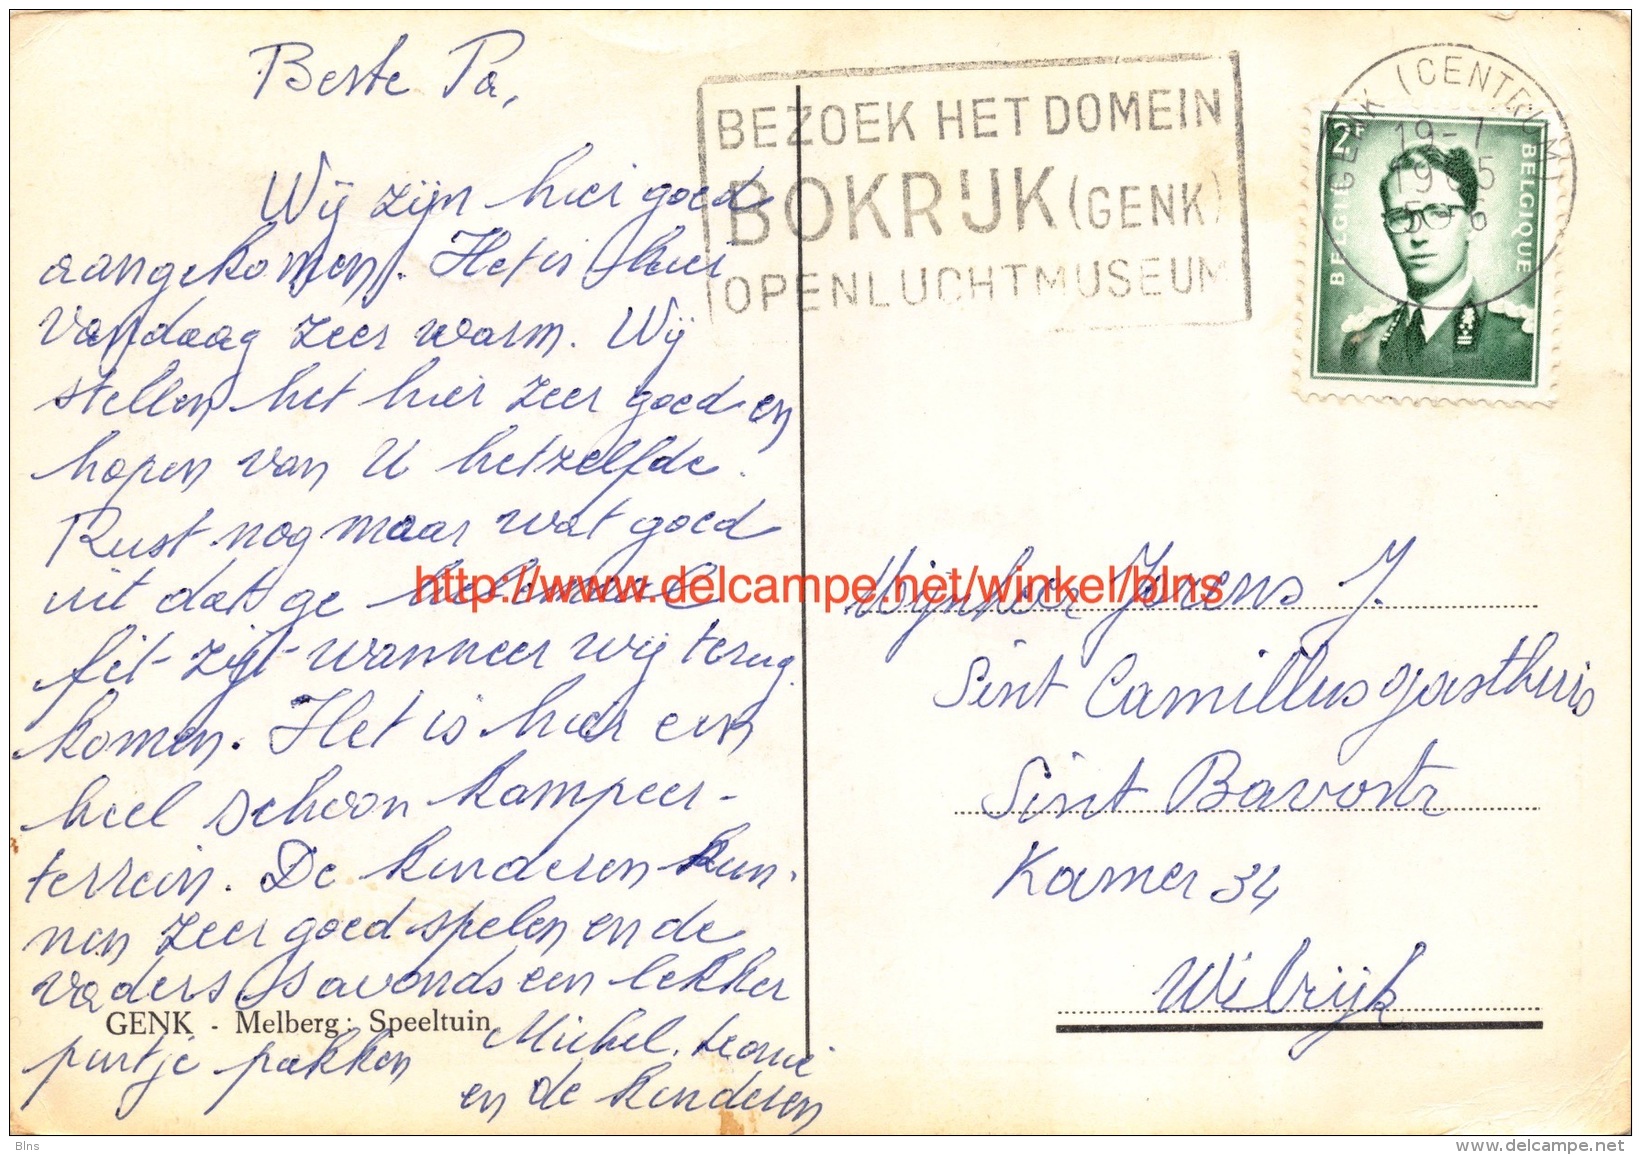 Beste Pa,
Wij zijn hier goed
aangekomen. Het is hier
vandaag zeer warm. Wij
stellen het hier zeer goed en
hopen van U hetzelfde.
Rust nog maar wat goed
uit dat ge helemaal
fit zijt wanneer wij terug
komen. Het is hier een
heel schoon kampeer-
terrein. De kinderen kun-
nen zeer goed spelen en de
vaders 's avonds een lekker
pintje pakken
Michel, Leonie
en de kinderen
GENK - Melberg: Speeltuin
BEZOEK HET DOMEIN
BOKRIJK (GENK)
OPENLUCHTMUSEUM
GENK (CENTRUM)
19-7
1965
2F
BELGIË BELGIQUE
Mijnheer Jorens J.
Sint Camillusgasthuis
Sint Bavostr
Kamer 34
Wilrijk
http://www.delcampe.net/winkel/blns
Blns
http://www.delcampe.net